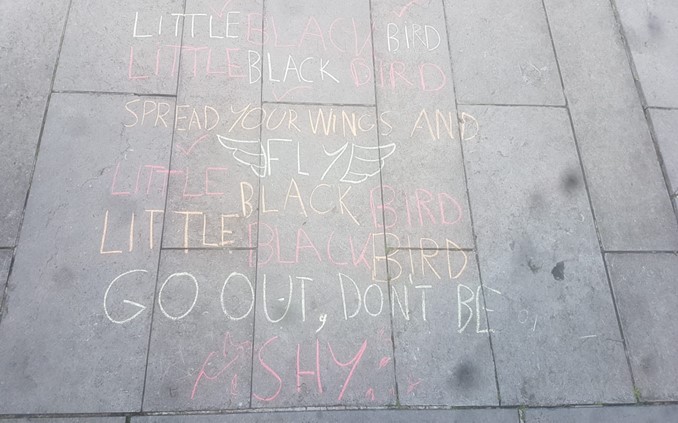 LITTLE BLACK BIRD
LITTLE BLACK BIRD
SPREAD YOUR WINGS AND
FLY
LITTLE BLACK BIRD
LITTLE BLACK BIRD
GO OUT, DON'T BE
SHY